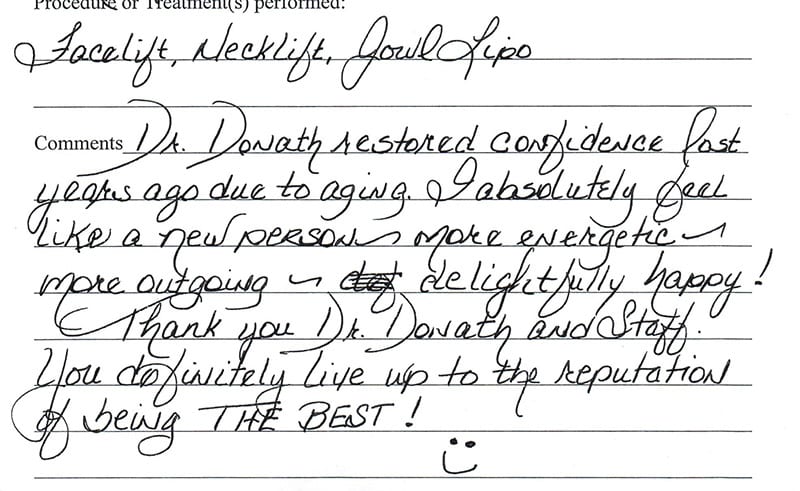 Procedure or Treatment(s) performed:
Facelift, Necklift, Jowl Lipo
Comments Dr. Donath restored confidence lost
years ago due to aging. I absolutely feel
like a new person ~ more energetic ~
more outgoing ~ delightfully happy!
Thank you Dr. Donath and Staff.
You definitely live up to the reputation
of being THE BEST!